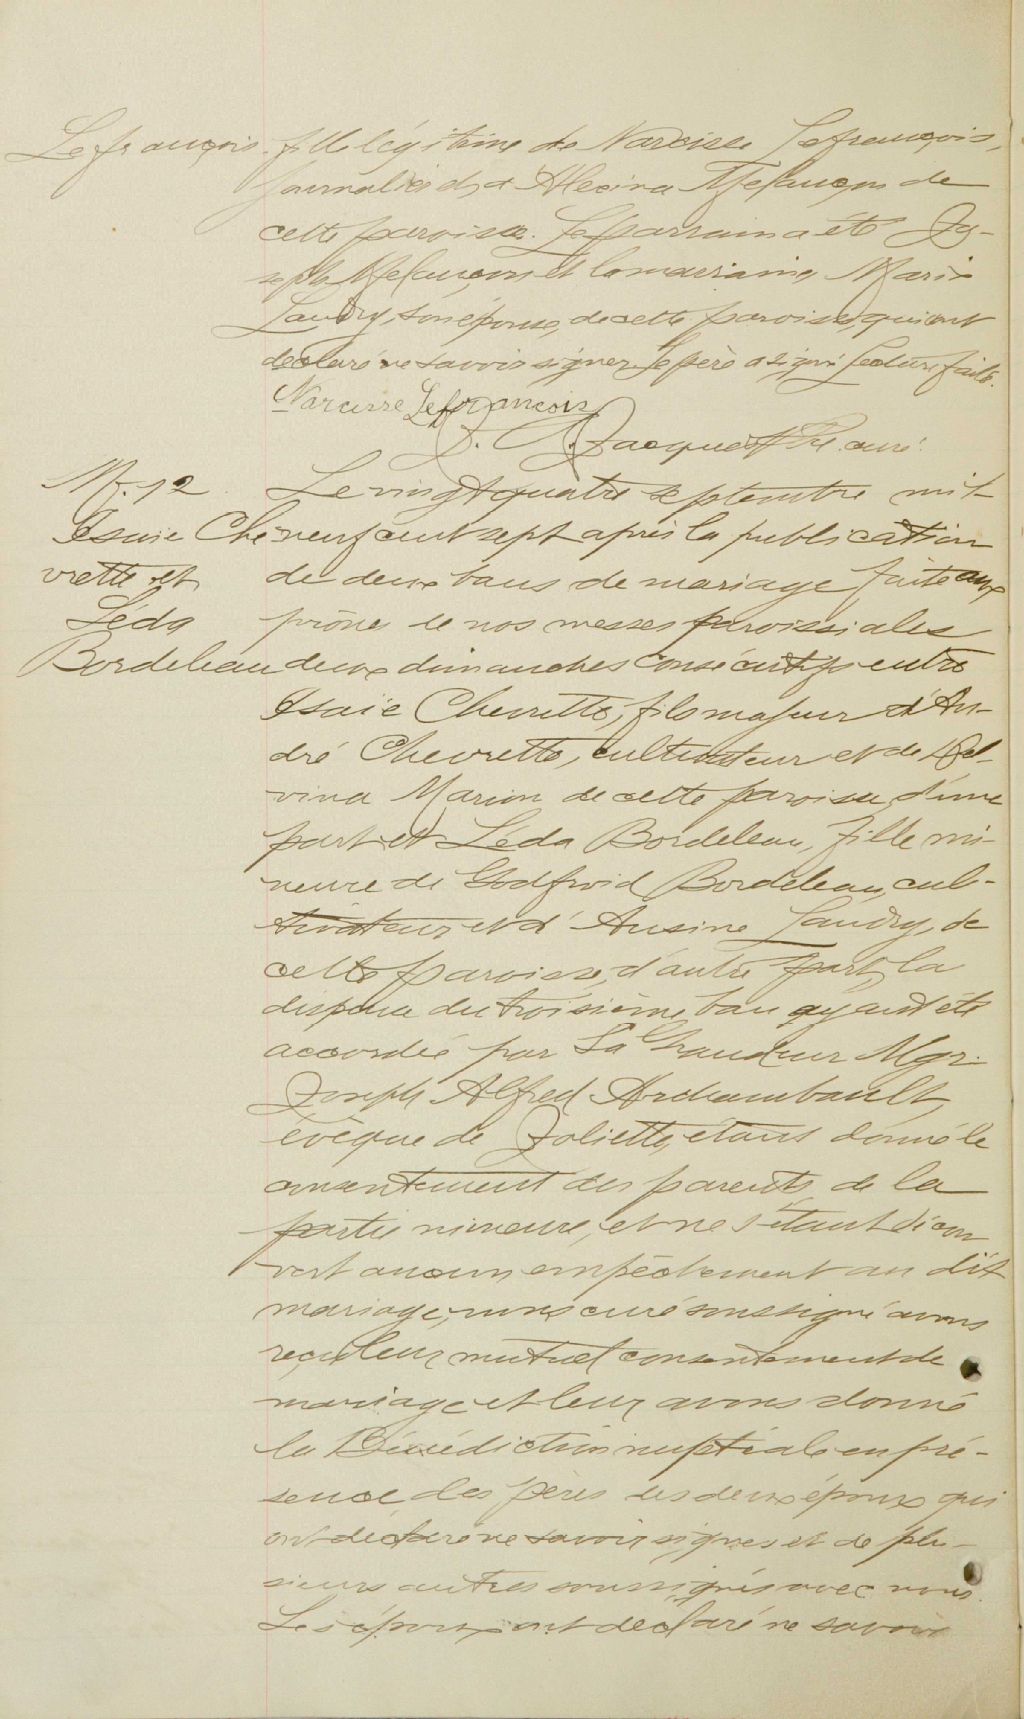 Lefrançois. fille légitime de Narcisse Lefrançois,
journalier, et d'Alexina Melançon de
cette paroisse. Le parrain a été Jo-
seph Melançon et la marraine, Marie
Landry, son épouse, de cette paroisse, qui ont
déclaré ne savoir signer. Le père a signé. Lecture faite.
Narcisse Lefrançois
Jacques Ptre. curé.
M. 12
Isaie Che
vrette et
Léda
Bordeleau
Le vingt quatre septembre mil
neuf cent sept après la publication
de deux bans de mariage faite aux
prônes de nos messes paroissiales
deux dimanches consécutifs entre
Isaïe Chevrette, fils majeur d'An-
dré Chevrette, cultivateur et de Mel-
vina Marion de cette paroisse, d'une
part et Léda Bordeleau, fille mi-
neure de Godfroid Bordeleau, cul-
tivateur et d'Ausine Landry, de
cette paroisse, d'autre part, la
dispense du troisième ban ayant été
accordée par Sa Grandeur Mgr.
Joseph Alfred Archambault,
évêque de Joliette, étant donné le
consentement des parents de la
partie mineure, et ne s'étant décou
vert aucun empêchement au dit
mariage, nous curé soussigné avons
reçu leur mutuel consentement de
mariage et leur avons donné
la Bénédiction nuptiale en pré-
sence des pères des deux époux qui
ont déclaré ne savoir signer et de plu-
sieurs autres soussignés avec nous.
Les époux ont déclaré ne savoir